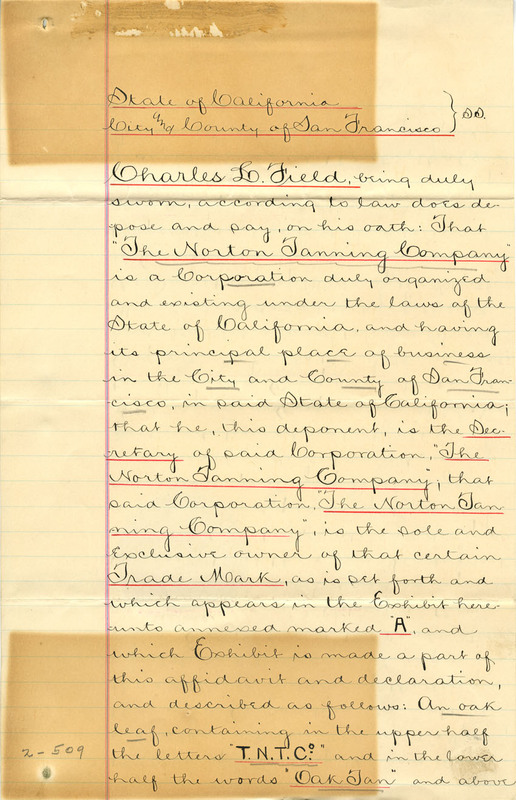 State of California
City and County of San Francisco } SS.
Charles L. Field, being duly
sworn, according to law does de-
pose and say, on his oath: That
"The Norton Tanning Company"
is a Corporation duly organized
and existing under the laws of the
State of California, and having
its principal place of business
in the City and County of San Fran-
cisco, in said State of California;
that he, this deponent, is the Sec-
retary of said Corporation, "The
Norton Tanning Company"; that
said Corporation, "The Norton Tan-
ning Company", is the sole and
Exclusive owner of that certain
Trade Mark, as is set forth and
which appears in the Exhibit here-
unto annexed marked "A", and
which Exhibit is made a part of
this affidavit and declaration,
and described as follows: An oak
leaf, containing in the upper half
the letters "T.N.T.Co." and in the lower
half the words "Oak Tan" and above
2-509